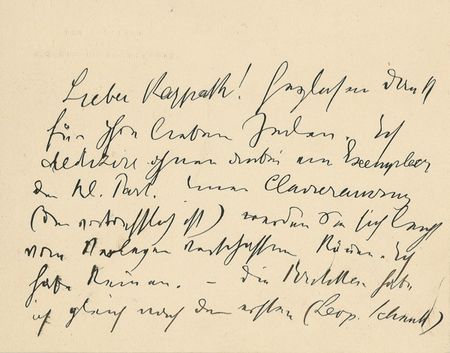 Lieber Karpath! Herzlichen Dank
für Ihre lieben Zeilen. Ich
dediziere Ihnen anbei ein Exemplar
der kl. Part. einen Clavierauszug
(der vortrefflich ist) werden Sie sich leicht
vom Verleger verschaffen können. Ich
habe keinen. – die Kritiken habe
ich gleich nach den ersten (Leop. Schmidt)